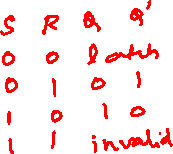 S R Q Q'
0 0 latch
0 1 0 1
1 0 1 0
1 1 invalid